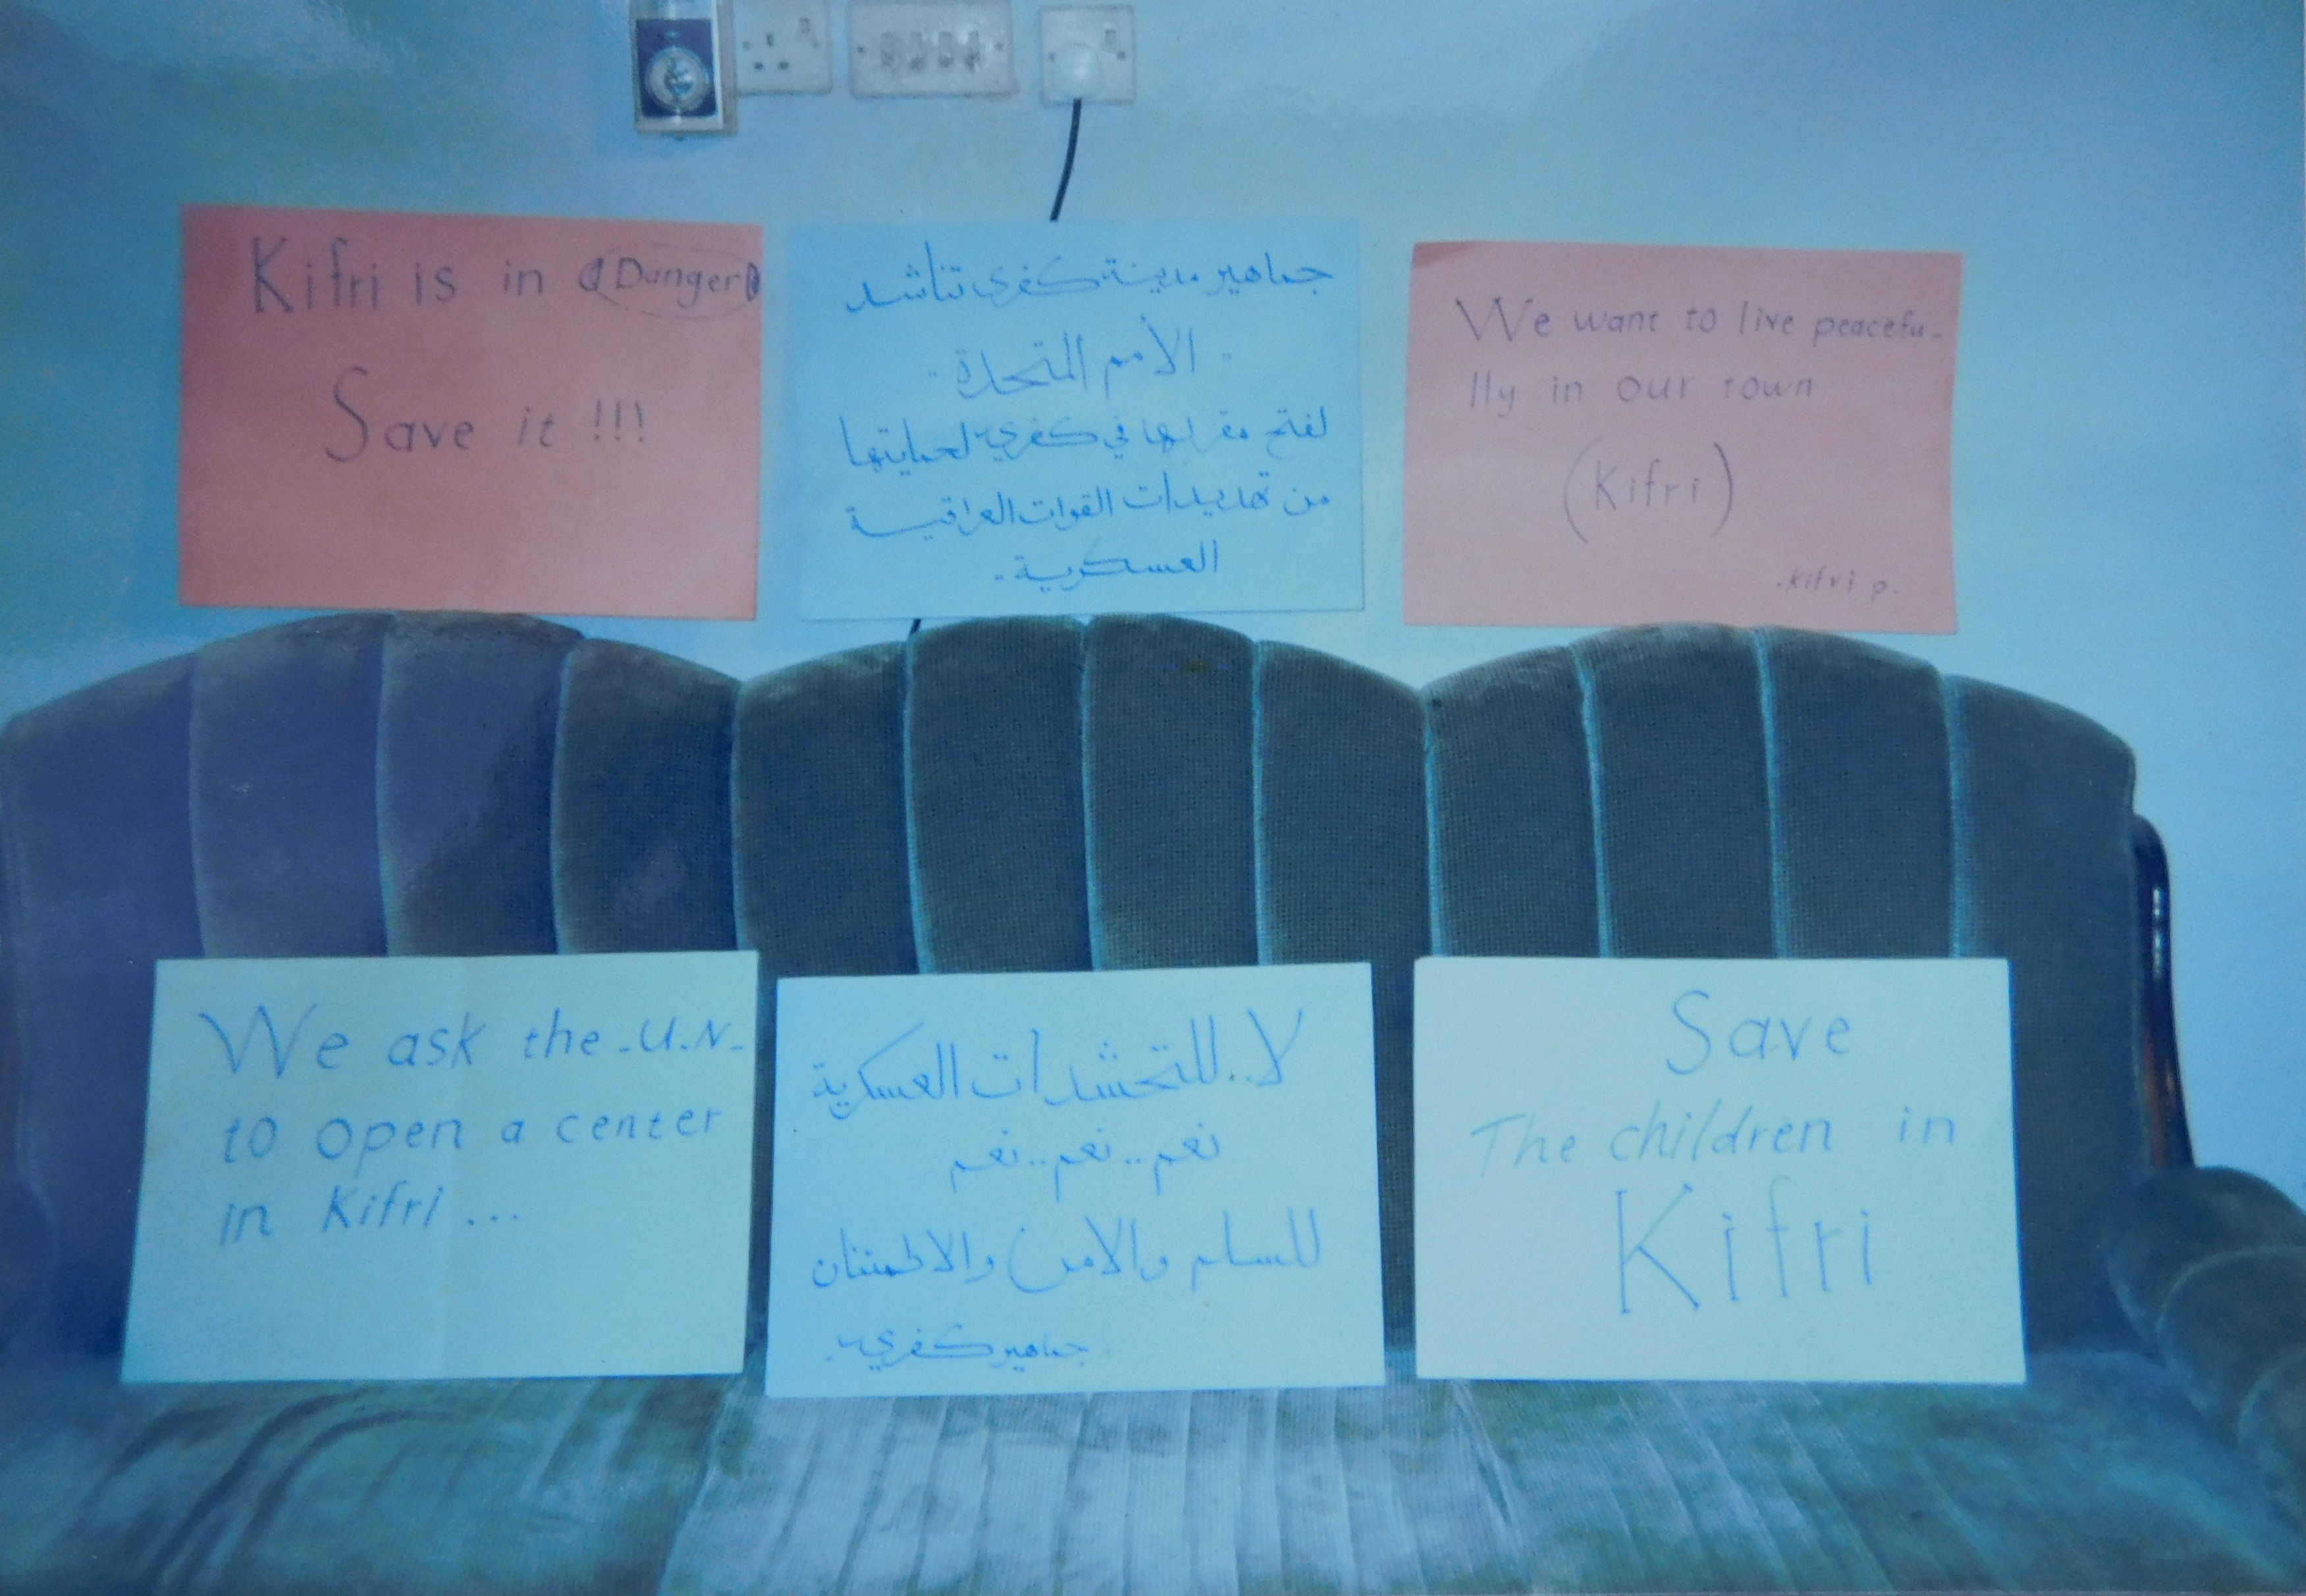 Kifri is in (Danger)
Save it !!!
جماهير مدينة كفري تناشد
.. الأمم المتحدة ..
لفتح مقر لها في كفري لحمايتها
من تهديدات القوات العراقية
العسكرية ..
We want to live peacefu-
lly in our town
(Kifri)
-kifri p.
We ask the -U.N-
to open a center
in Kifri ...
لا .. للتحشدات العسكرية
نعم .. نعم .. نعم
للسلم والامن والاطمئنان
جماهير كفري
Save
The children in
Kifri